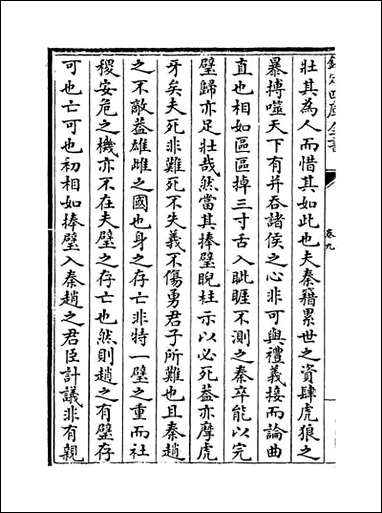 欽定四庫全書
卷九
壯其為人而惜其如此也夫秦籍累世之資肆虎狼之
暴搏噬天下有并吞諸侯之心非可與禮義接而論曲
直也相如區區掉三寸舌入眦睚不測之秦卒能以完
璧歸亦足壯哉然當其捧璧睨柱示以必死葢亦摩虎
牙矣夫死非難死不失義不傷勇君子所難也且秦趙
之不敵葢雄雌之國也身之存亡非特一璧之重而社
稷安危之機亦不在夫璧之存亡也然則趙之有璧存
可也亡可也初相如捧璧入秦趙之君臣計議非有親